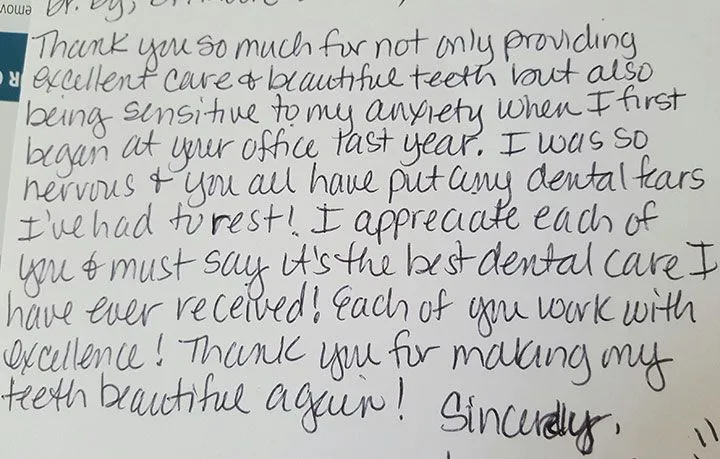 Dr.
Thank you so much for not only providing
excellent care & beautiful teeth but also
being sensitive to my anxiety when I first
began at your office last year. I was so
nervous & you all have put any dental fears
I've had to rest! I appreciate each of
you & must say it's the best dental care I
have ever received! Each of you work with
excellence! Thank you for making my
teeth beautiful again!
Sincerely,